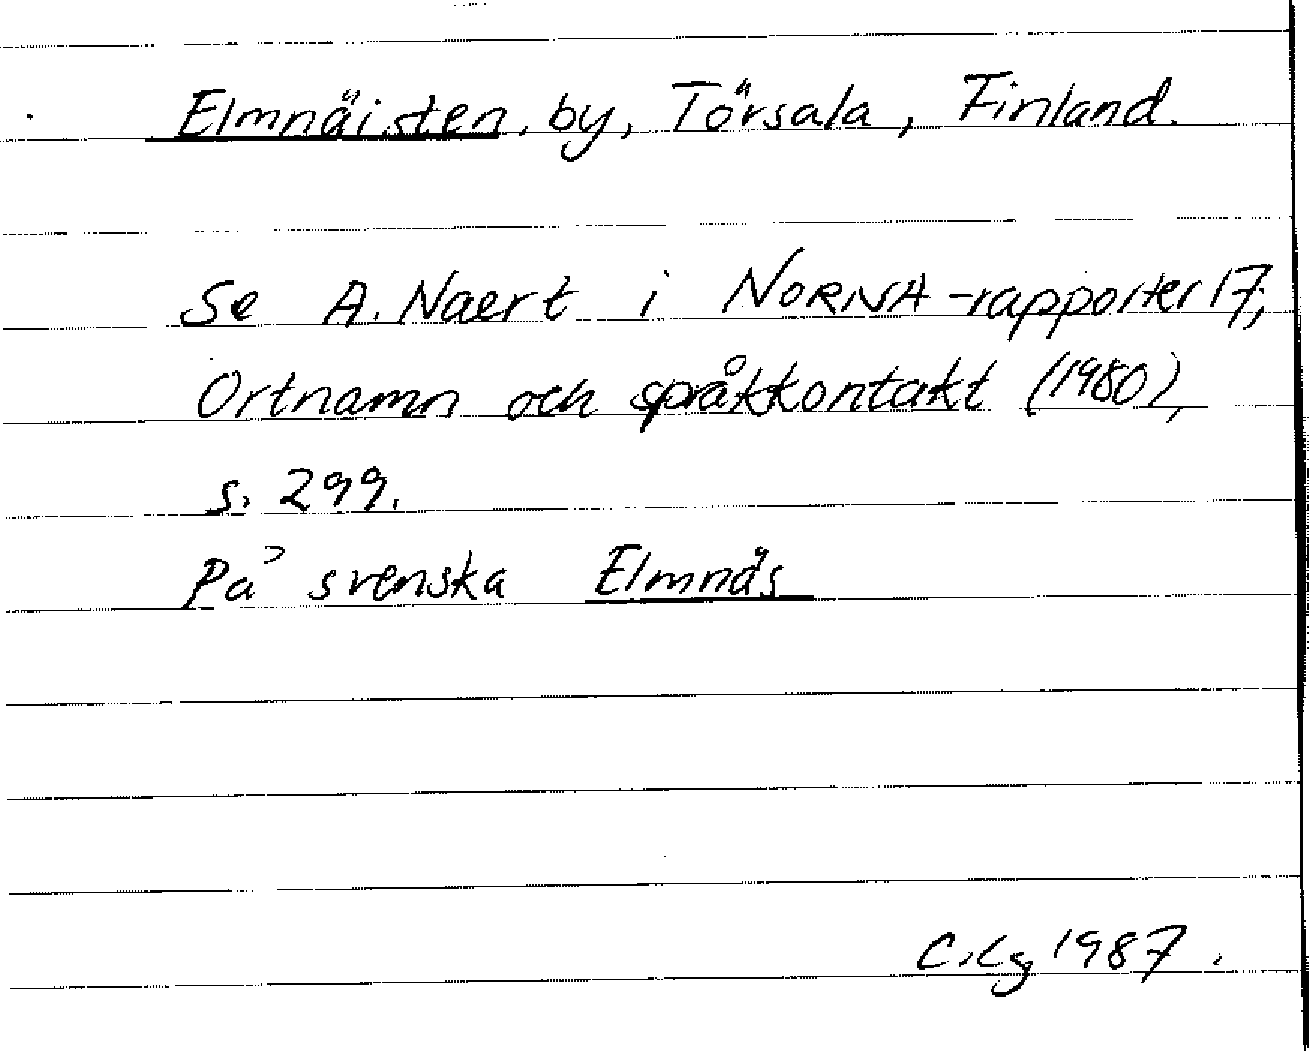 Elmnäisten, by, Törsala, Finland.
Se A. Naert i NORNA-rapporter 17,
Ortnamn och språkkontakt (1980),
s. 299.
På svenska Elmnäs
C. Lg 1987.